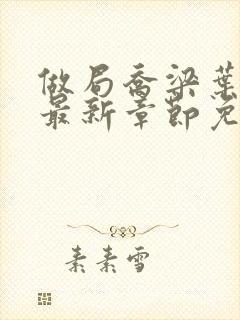 做局喬梁葉
最新章節免
素素雪